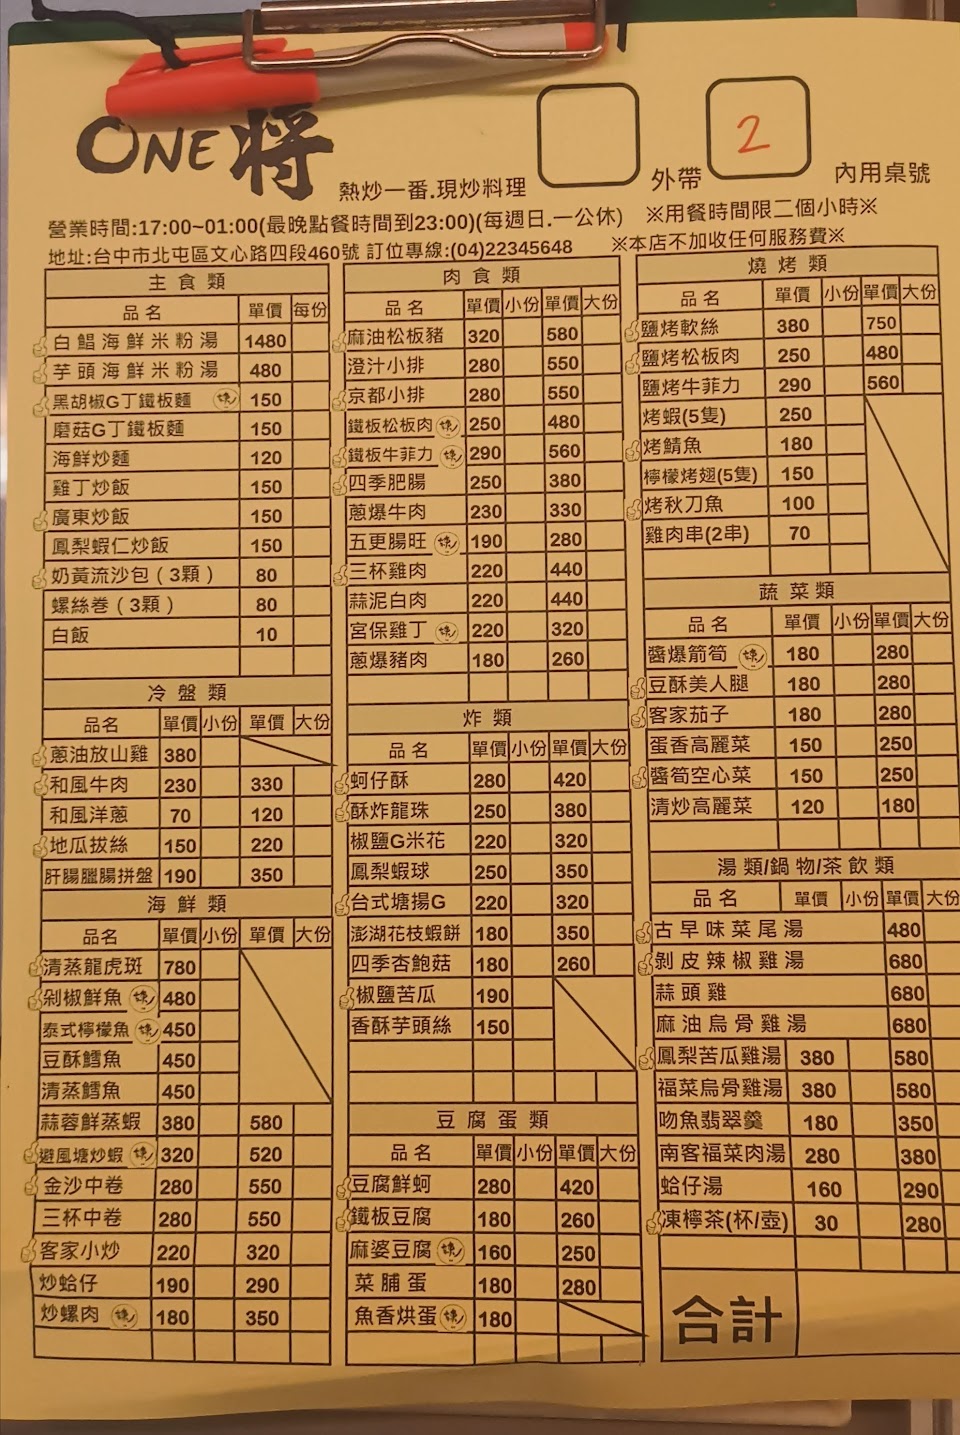 ONE將
熱炒一番.現炒料理
外帶
2
內用桌號
營業時間:17:00~01:00(最晚點餐時間到23:00)(每週日.一公休) ※用餐時間限二個小時※
地址:台中市北屯區文心路四段460號 訂位專線:(04)22345648 ※本店不加收任何服務費※
主食類
品名 單價 每份
白鯧海鮮米粉湯 1480
芋頭海鮮米粉湯 480
黑胡椒G丁鐵板麵 150
磨菇G丁鐵板麵 150
海鮮炒麵 120
雞丁炒飯 150
廣東炒飯 150
鳳梨蝦仁炒飯 150
奶黃流沙包(3顆) 80
螺絲巻(3顆) 80
白飯 10
冷盤類
品名 單價 小份 單價 大份
蔥油放山雞 380
和風牛肉 230 330
和風洋蔥 70 120
地瓜拔絲 150 220
肝腸臘腸拼盤 190 350
海鮮類
品名 單價 小份 單價 大份
清蒸龍虎斑 780
剁椒鮮魚 480
泰式檸檬魚 450
豆酥鱈魚 450
清蒸鱈魚 450
蒜蓉鮮蒸蝦 380 580
避風塘炒蝦 320 520
金沙中卷 280 550
三杯中卷 280 550
客家小炒 220 320
炒蛤仔 190 290
炒螺肉 180 350
肉食類
品名 單價 小份 單價 大份
麻油松板豬 320 580
澄汁小排 280 550
京都小排 280 550
鐵板松板肉 250 480
鐵板牛菲力 290 560
四季肥腸 250 380
蔥爆牛肉 230 330
五更腸旺 190 280
三杯雞肉 220 440
蒜泥白肉 220 440
宮保雞丁 220 320
蔥爆豬肉 180 260
炸類
品名 單價 小份 單價 大份
蚵仔酥 280 420
酥炸龍珠 250 380
椒鹽G米花 220 320
鳳梨蝦球 250 350
台式塘揚G 220 320
澎湖花枝蝦餅 180 350
四季杏鮑菇 180 260
椒鹽苦瓜 190
香酥芋頭絲 150
豆腐蛋類
品名 單價 小份 單價 大份
豆腐鮮蚵 280 420
鐵板豆腐 180 260
麻婆豆腐 160 250
菜脯蛋 180 280
魚香烘蛋 180
燒烤類
品名 單價 小份 單價 大份
鹽烤軟絲 380 750
鹽烤松板肉 250 480
鹽烤牛菲力 290 560
烤蝦(5隻) 250
烤鯖魚 180
檸檬烤翅(5隻) 150
烤秋刀魚 100
雞肉串(2串) 70
蔬菜類
品名 單價 小份 單價 大份
醬爆箭筍 180 280
豆酥美人腿 180 280
客家茄子 180 280
蛋香高麗菜 150 250
醬筍空心菜 150 250
清炒高麗菜 120 180
湯類/鍋物/茶飲類
品名 單價 小份 單價 大份
古早味菜尾湯 480
剝皮辣椒雞湯 680
蒜頭雞 680
麻油烏骨雞湯 680
鳳梨苦瓜雞湯 380 580
福菜烏骨雞湯 380 580
吻魚翡翠羹 180 350
南客福菜肉湯 280 380
蛤仔湯 160 290
凍檸茶(杯/壺) 30 280
合計